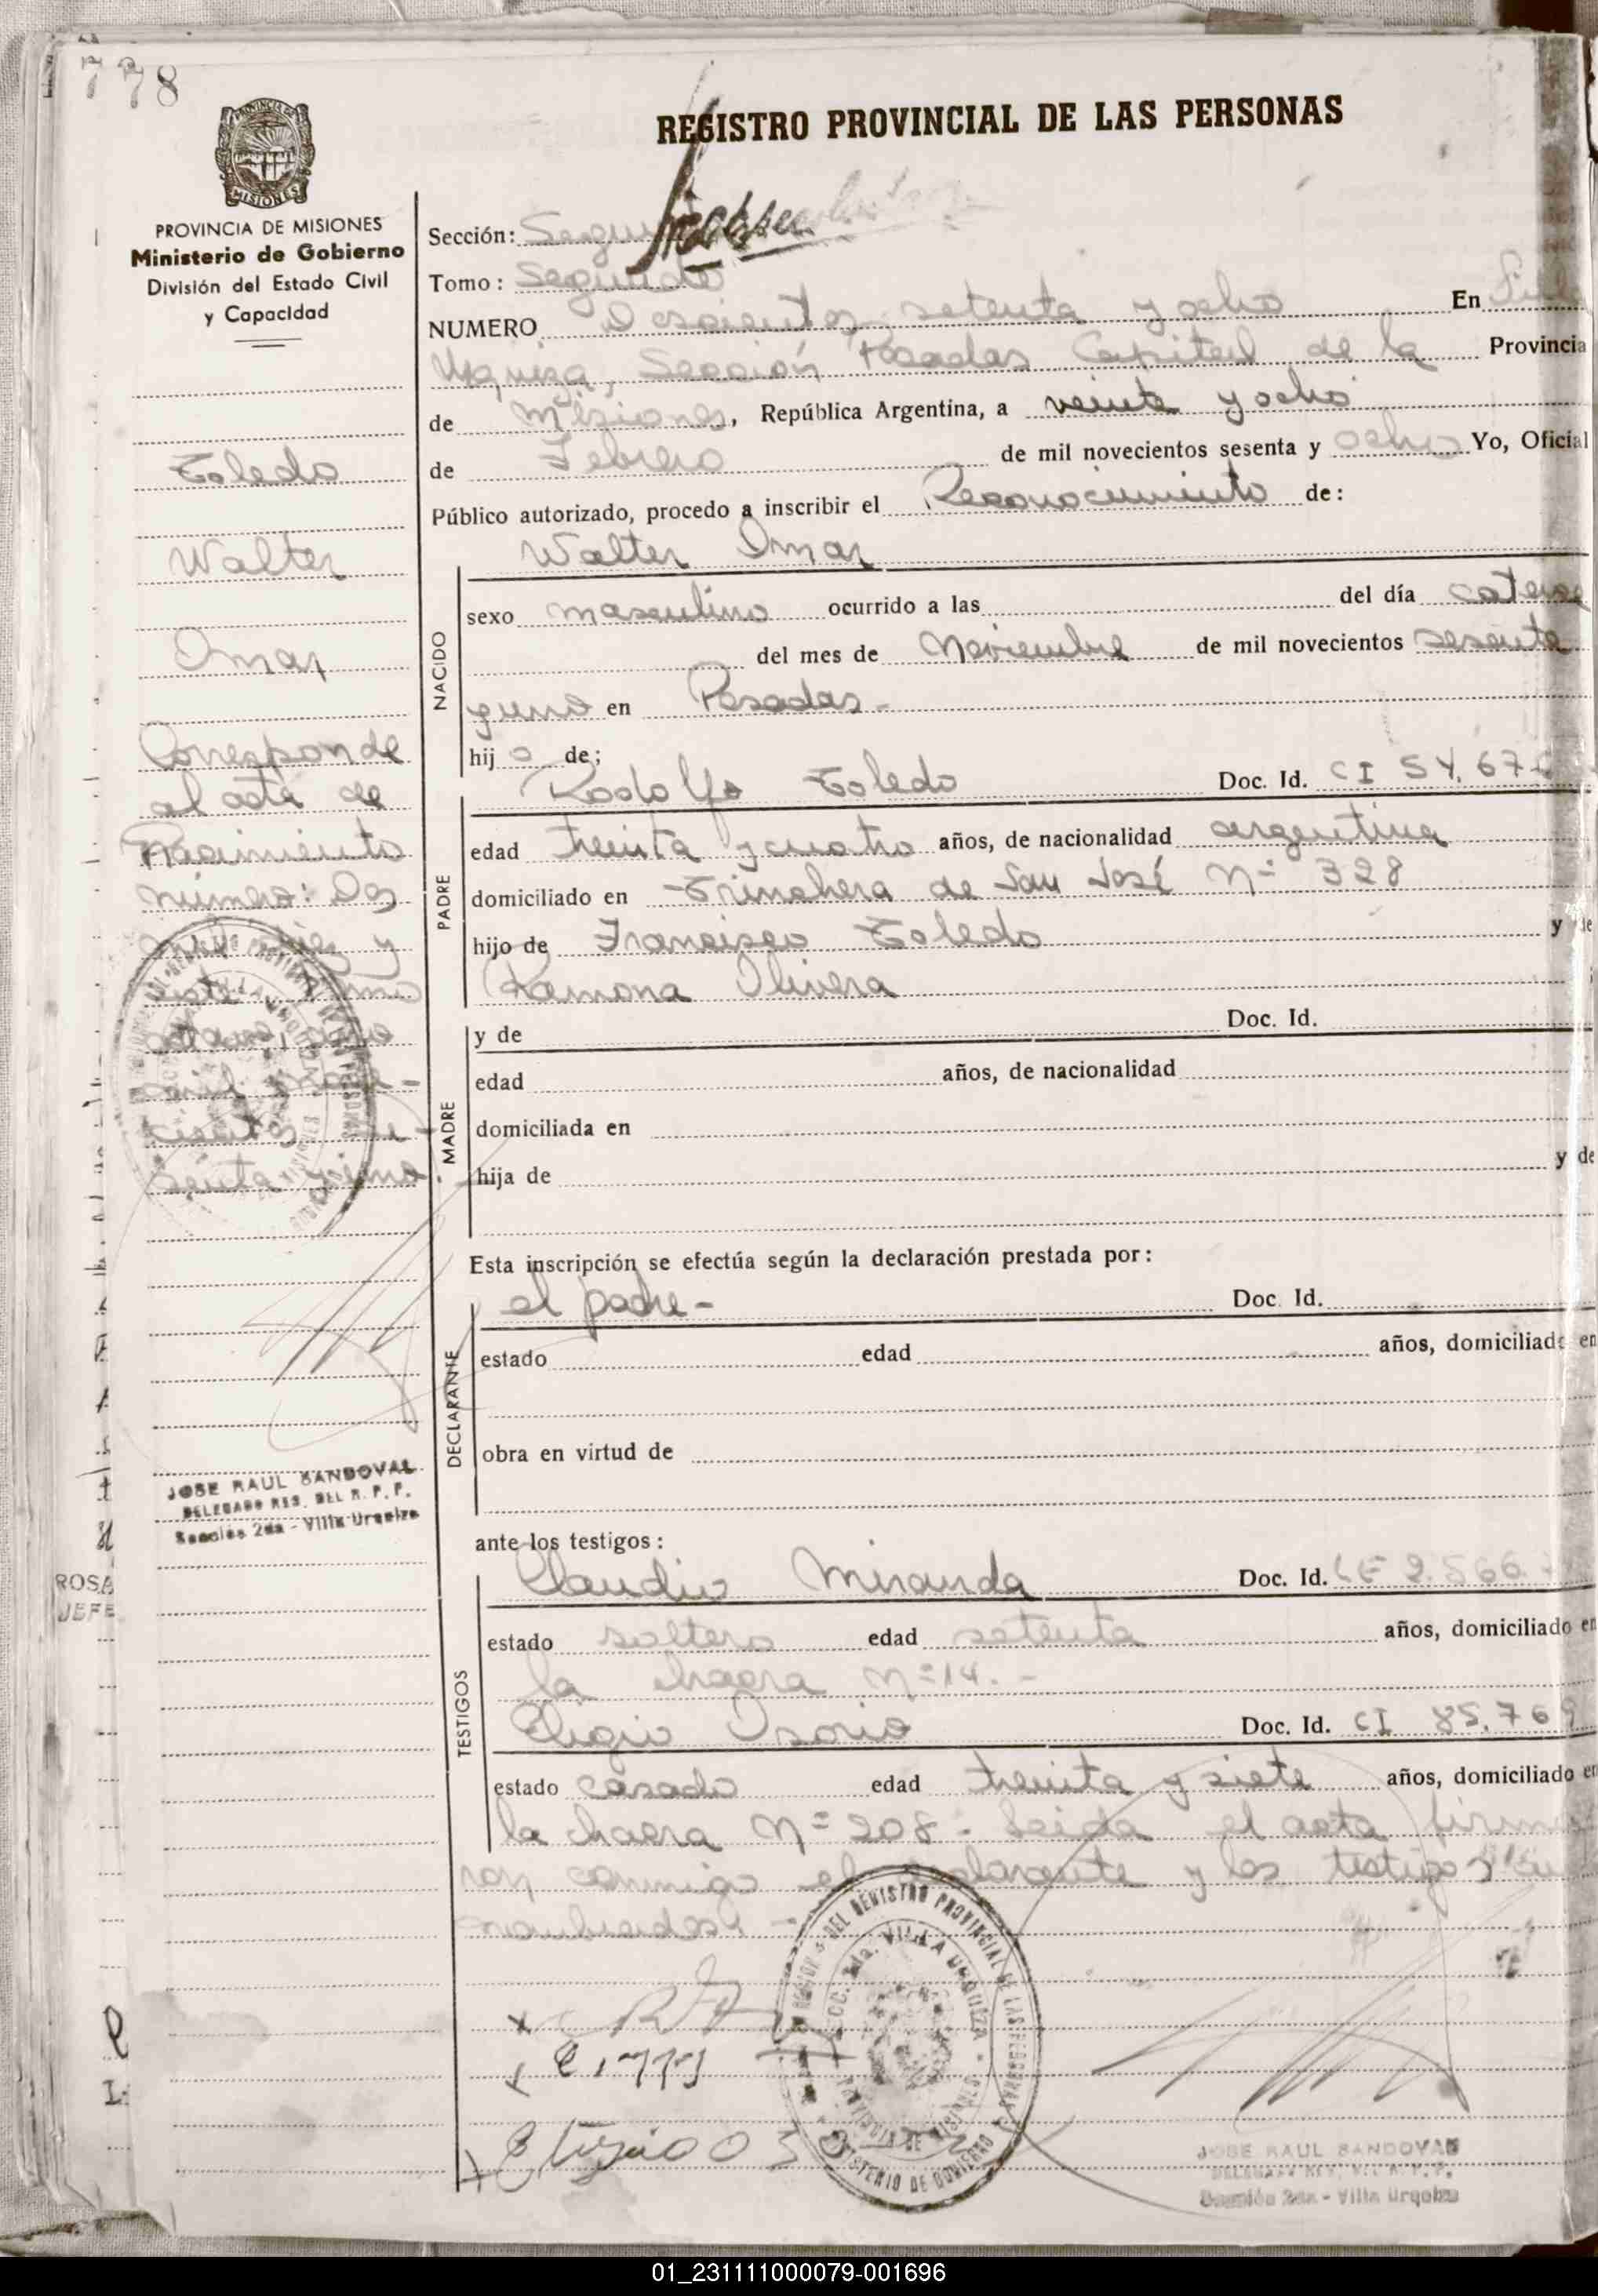 778
REGISTRO PROVINCIAL DE LAS PERSONAS
PROVINCIA DE MISIONES
Ministerio de Gobierno
División del Estado Civil
y Capacidad
Toledo
Walter
Omar
Corresponde
al acta de
Nacimiento
número: Dos
y
senta y uno.
JOSE RAUL SANDOVAL
DELEGADO RES. DEL R. P. P.
Sección 2da - Villa Urquiza
ROSA
JEFE
Sección:
Tomo: Segundo
NUMERO Doscientos setenta y ocho En
Urquiza, Sección Posadas Capital de la Provincia
de Misiones, República Argentina, a veinte y ocho
de Febrero de mil novecientos sesenta y ocho Yo, Oficial
Público autorizado, procedo a inscribir el Reconocimiento de:
Walter Omar
NACIDO
sexo masculino ocurrido a las del día catorce
del mes de Noviembre de mil novecientos sesenta
y uno en Posadas.-
hijo de:
Rodolfo Toledo Doc. Id. CI 54.67
PADRE
edad treinta y cuatro años, de nacionalidad argentina
domiciliado en Trinchera de San José Nº 328
hijo de Francisco Toledo y de
Ramona Olivera
MADRE
y de Doc. Id.
edad años, de nacionalidad
domiciliada en
hija de y de
Esta inscripción se efectúa según la declaración prestada por:
DECLARANTE
el padre- Doc. Id.
estado edad años, domiciliado en
obra en virtud de
ante los testigos:
TESTIGOS
Claudio Miranda Doc. Id. LE 2.566.
estado soltero edad setenta años, domiciliado en
la chacra Nº 14.-
Eligio Osorio Doc. Id. CI 85.769
estado casado edad treinta y siete años, domiciliado en
la chacra Nº 208.- Leida el acta firma
ron conmigo el declarante y los testigos
nombrados.-
JOSE RAUL SANDOVAL
DELEGADO RES. DEL R. P. P.
Sección 2da - Villa Urquiza
01_231111000079-001696